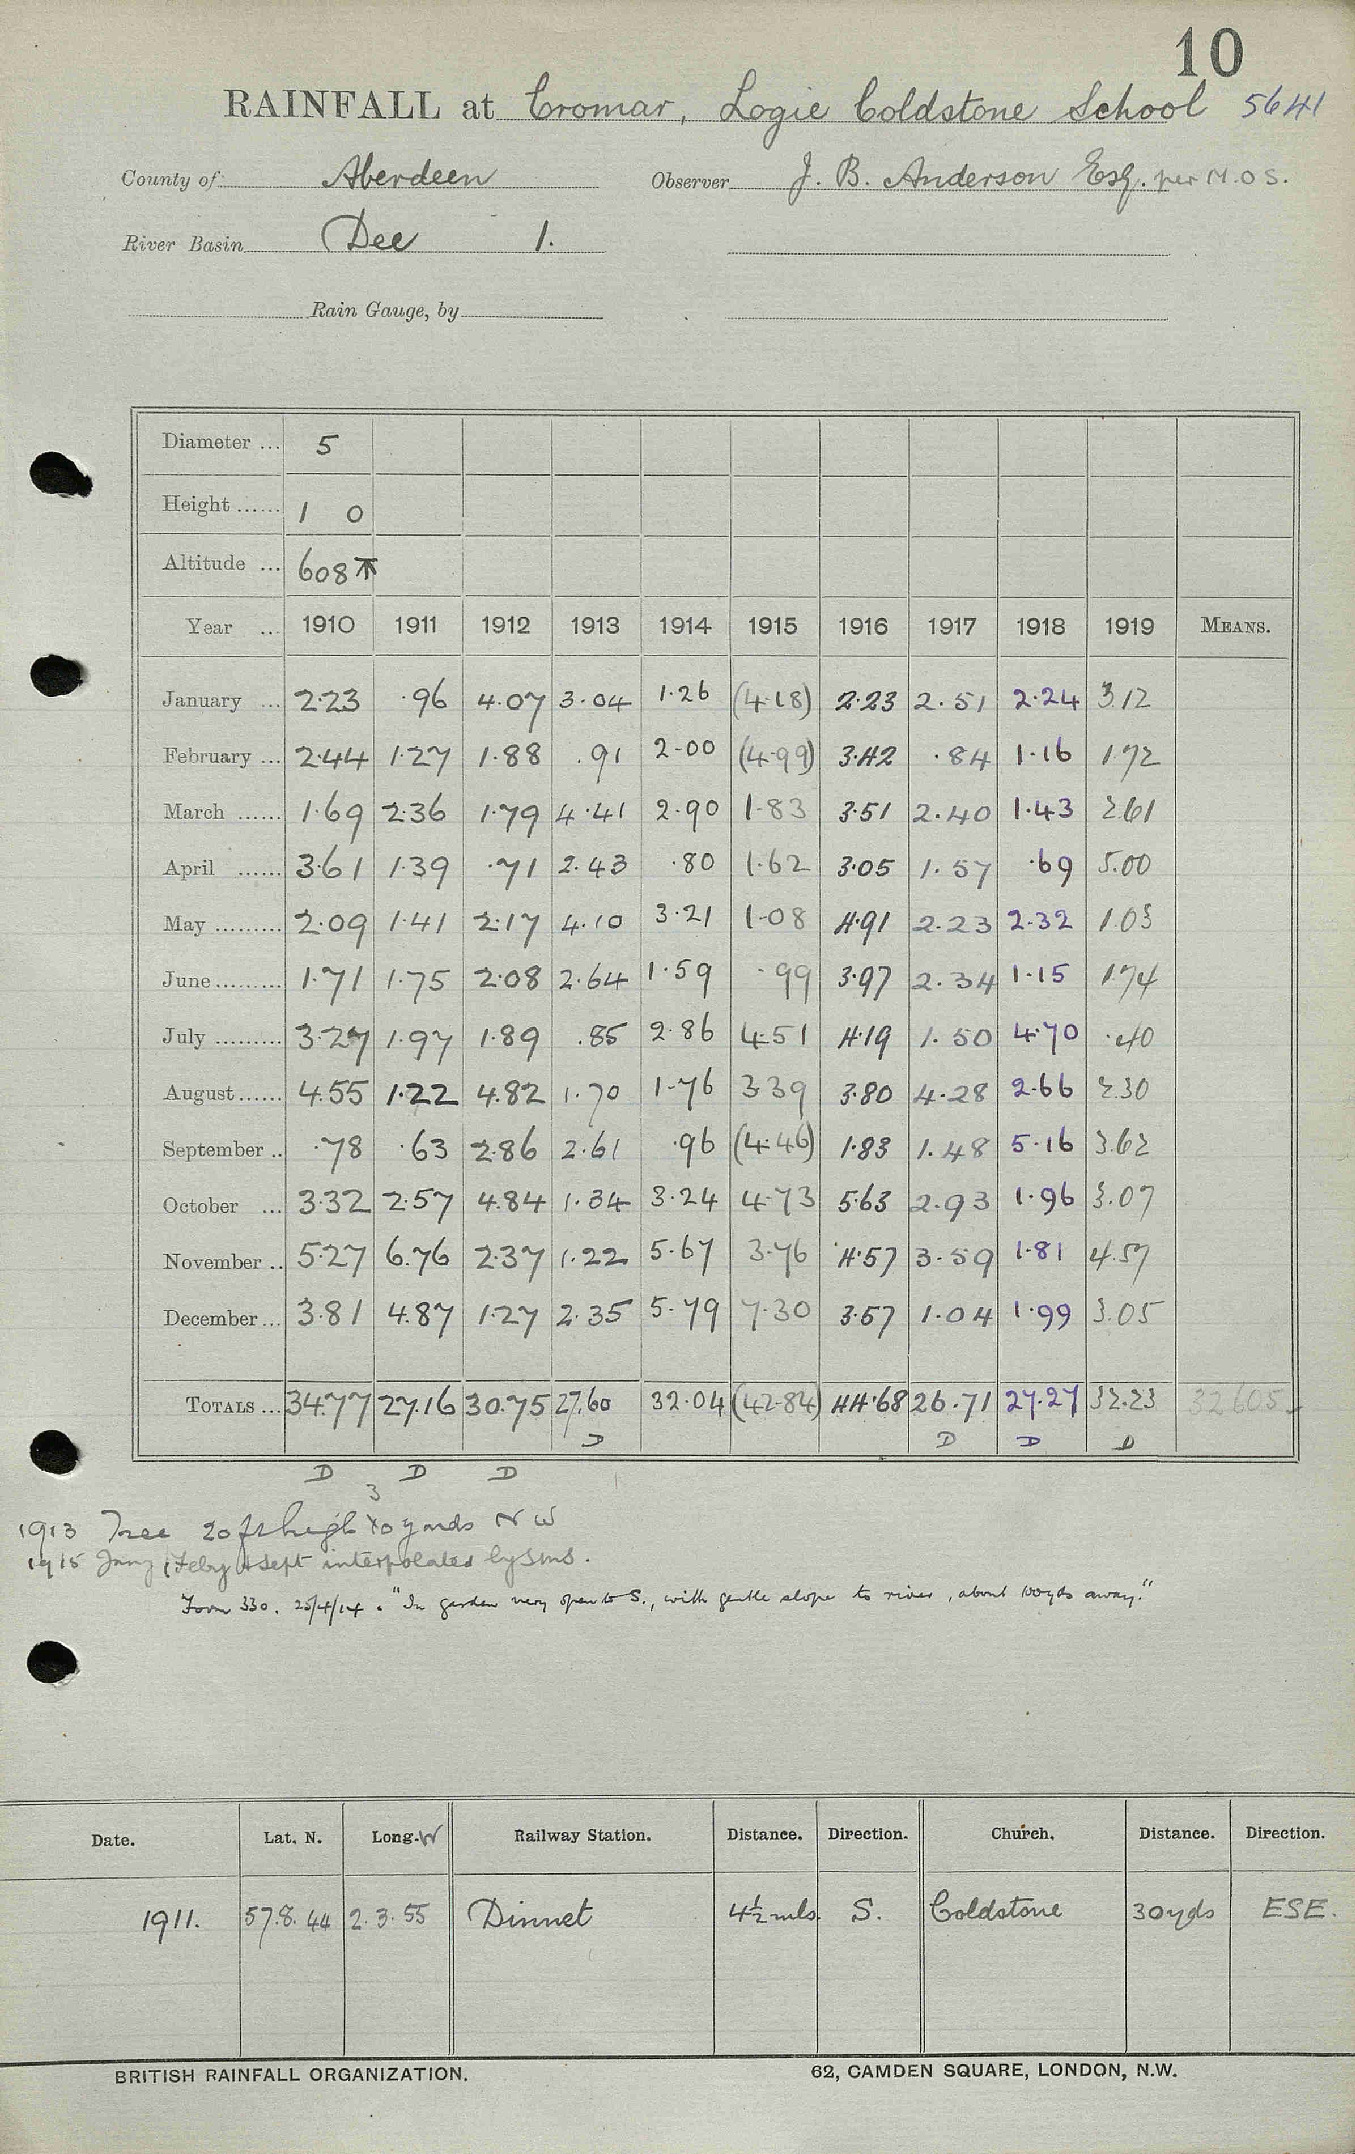 10
RAINFALL at Cromar, Logie Coldstone School 5641
County of Aberdeen Observer J. B. Anderson Esq. per M.O.S.
River Basin Dee 1.
Rain Gauge, by
Diameter ... 5
Height ...... 1 0
Altitude ... 608
Year ... 1910 1911 1912 1913 1914 1915 1916 1917 1918 1919 MEANS.
January ... 2.23 .96 4.07 3.04 1.26 (4.18) 2.23 2.51 2.24 3.12
February ... 2.44 1.27 1.88 .91 2.00 (4.99) 3.42 .84 1.16 1.72
March ...... 1.69 2.36 1.79 4.41 2.90 1.83 3.51 2.40 1.43 2.61
April ...... 3.61 1.39 .71 2.43 .80 1.62 3.05 1.57 .69 5.00
May ......... 2.09 1.41 2.17 4.10 3.21 1.08 4.91 2.23 2.32 1.03
June ......... 1.71 1.75 2.08 2.64 1.59 .99 3.97 2.34 1.15 1.74
July ......... 3.27 1.97 1.89 .85 2.86 4.51 4.19 1.50 4.70 .40
August ...... 4.55 1.22 4.82 1.70 1.76 3.39 3.80 4.28 2.66 2.30
September .. .78 .63 2.86 2.61 .96 (4.46) 1.83 1.48 5.16 3.62
October ... 3.32 2.57 4.84 1.34 3.24 4.73 5.63 2.93 1.96 3.07
November .. 5.27 6.76 2.37 1.22 5.67 3.76 4.57 3.59 1.81 4.57
December ... 3.81 4.87 1.27 2.35 5.79 7.30 3.57 1.04 1.99 3.05
TOTALS ... 34.77 27.16 30.75 27.60 32.04 (42.84) 44.68 26.71 27.27 32.23 32605
D D D D
D D D
3
1913 Tree 20 ft high 10 yards NW
1915 Jany, Feby & Sept interpolated by
Form 330. 25/4/14. "In garden very open to S., with gentle slope to river, about 100 yds away."
Date. Lat. N. Long. W Railway Station. Distance. Direction. Church. Distance. Direction.
1911. 57.8.44 2.3.55 Dinnet 4½ mls. S. Coldstone 30 yds ESE.
BRITISH RAINFALL ORGANIZATION. 62, CAMDEN SQUARE, LONDON, N.W.